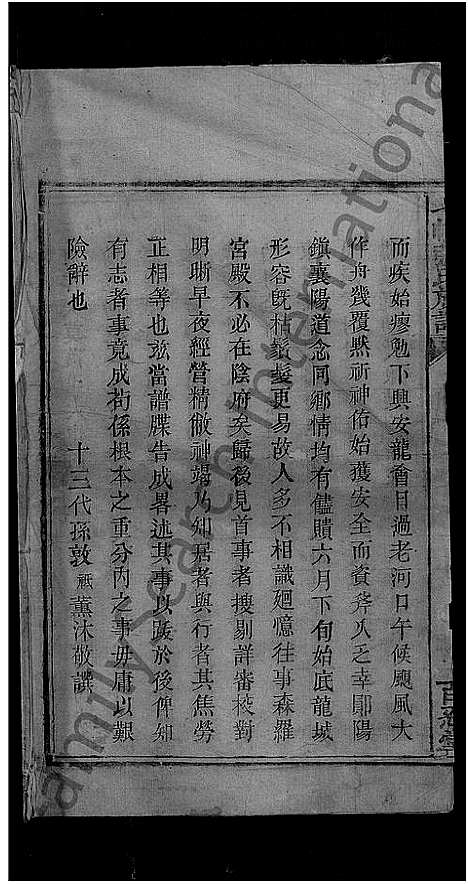 而疾始瘳勉下興安龍會日過老河口午候颶風大
作舟幾覆默祈神佑始獲安全而資斧久乏幸鄖陽
鎮襄陽道念同鄉情均有儘贐六月下旬始底龍城
形容旣枯鬚髮更易故人多不相識廻憶往事森羅
宮殿不必在陰府矣歸後見首事者搜剔詳審校對
明晰早夜經營精僘神竭乃知居者與行者其焦勞
正相等也玆當譜牒告成畧述其事以䟦於後俾知
有志者事竟成茍係根本之重分内之事毋庸以艱
險辭也
十三代孫敦㼵薰沐敬譔
Family Search International